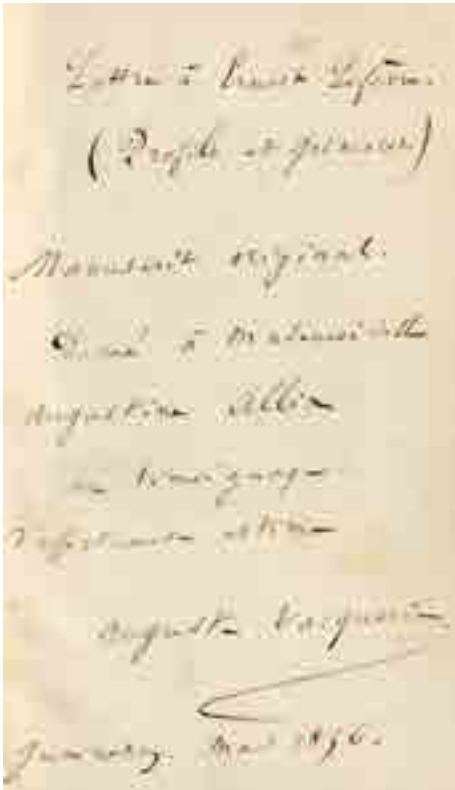 Lettre à Ernest Lefèvre.
(Profils et Grimaces)
Manuscrit original.
Donné à Mademoiselle
Augustine Allix
en témoignage
d'affectueuse estime
Auguste Vacquerie
Guernesey. Mai 1856.